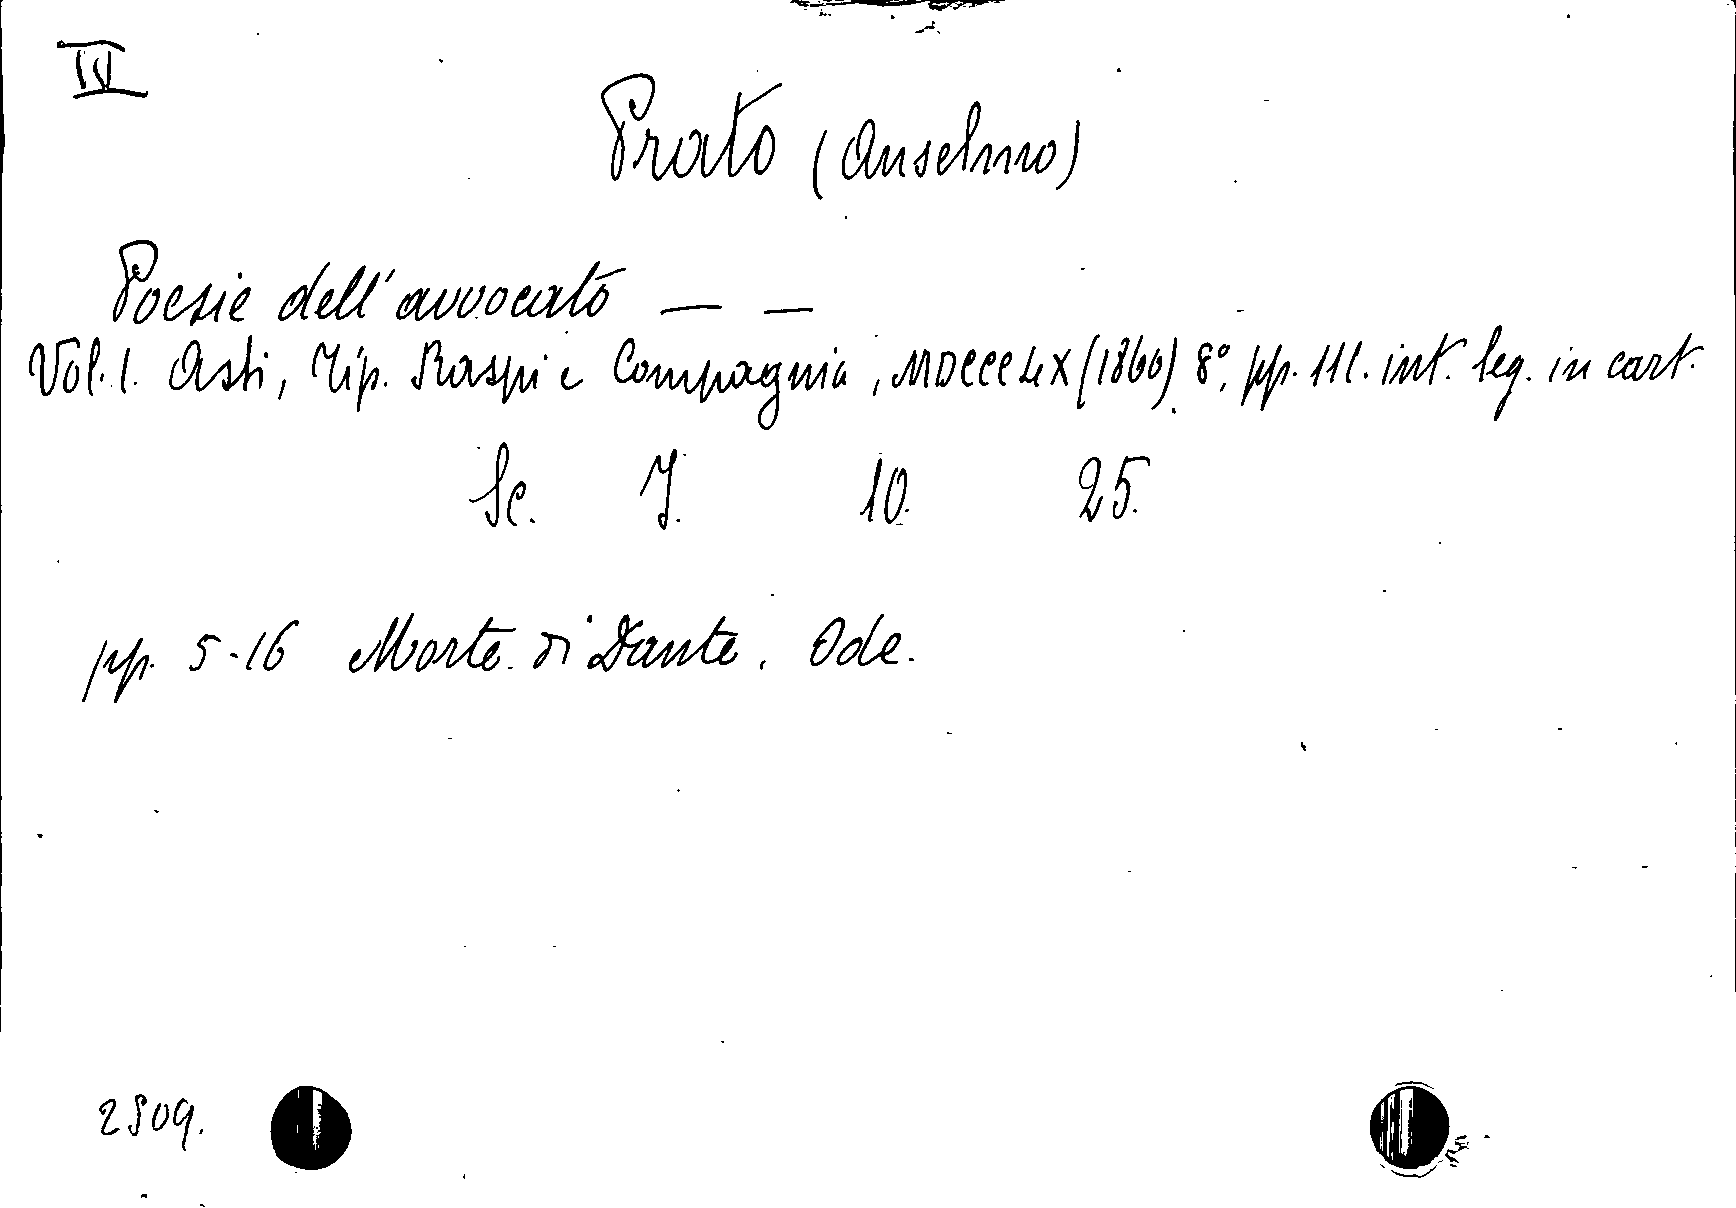 IV
Prato (Anselmo)
Poesie dell'avvocato — —
Vol. I. Asti, Tip. Raspi e Compagnia, MDCCCLX (1860) 8°, pp. 111. int. leg. in cart.
Sc. I. 10. 25.
pp. 5-16 Morte di Dante. Ode.
2509.